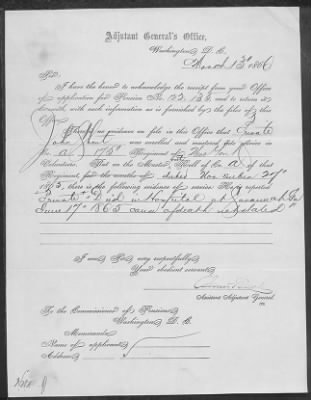 Adjutant General's Office,
Washington, D. C.
March 13th 1866
Sir:
I have the honor to acknowledge the receipt from your Office
of application for Pension No. 122,133, and to return it
herewith, with such information as is furnished by the files of
this Office.
It appears evidence on file in this Office that Private
John was enrolled and mustered into service
Co. A, 175th Regiment of New York
Volunteers. That on the Muster Roll of Co. A, of that
Regiment, for the months of
1865, there is the following evidence of service: He is reported
Private "Died in Hospital at Savannah Ga
June 17th 1865 cause of death not stated"
I am, Sir, very respectfully,
Your obedient servant,
Assistant Adjutant General.
To the Commissioner of Pensions,
Washington, D. C.
Memoranda:
Name of applicant,
Address,